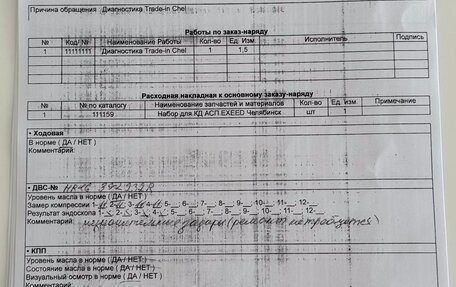 Причина обращения Диагностика Trade-in Chel
Работы по заказ-наряду
№ Код/ № Наименование Работы Кол-во Ед. Изм Исполнитель Подпись
1 11111111 Диагностика Trade-in Chel 1 1,5
Расходная накладная к основному заказу-наряду
№ № по каталогу Наименование запчастей и материалов Кол-во Ед. изм. Примечание
1 111159 Набор для КД АСП EXEED Челябинск шт 1
• Ходовая
В норме ( ДА / НЕТ )
Комментарий:
• ДВС-№
Уровень масла в норме ( ДА / НЕТ )
Замер компрессии 1- 2- 3- 4- 5-__; 6-__; 7-__; 8-__; 9-__; 10-__; 11-__; 12-__
Результат эндоскопа 1- 2- 3- 4- 5-__; 6-__; 7-__; 8-__; 9-__; 10-__; 11-__; 12-__
Комментарий: незначительные задиры (ремонт не требуется)
• КПП
Уровень масла в норме ( ДА / НЕТ )
Состояние масла в норме ( ДА / НЕТ )
Визуальный осмотр в норме ( ДА / НЕТ )
Комментарий: